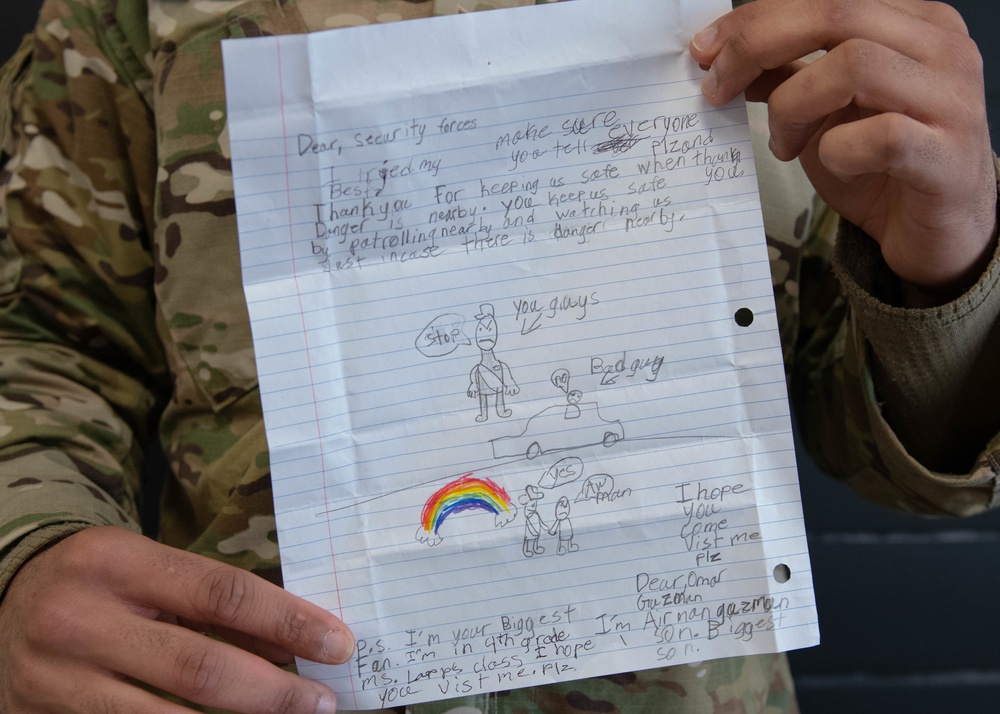 Dear, security forces
I tryed my
Best
make sure
you tell everyone
plz and
thank
you.
Thank you For keeping us safe when
Danger is nearby. you keep us safe
by patrolling nearby and watching us
Just incase there is danger nearby.
you guys
stop
Bad guy
no
yes
Aw
man
I hope
you
come
vist me
plz
Dear, Omar
Guzman
P.s. I'm your Biggest
Fan. I'm in 4th grade
ms. class I hope
you vist me. plz.
I'm Airman guzman
son. Biggest
son.